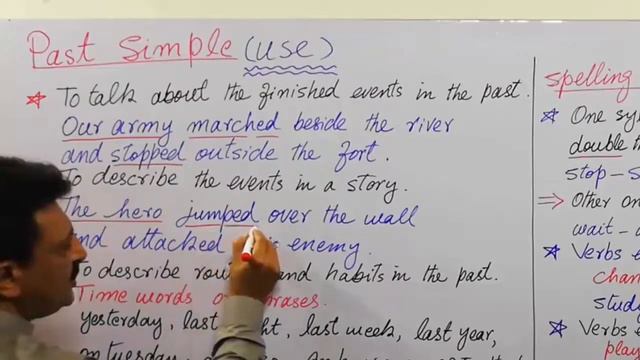 Past Simple (use)
To talk about the finished events in the past.
Our army marched beside the river
and stopped outside the fort.
To describe the events in a story.
The hero jumped over the wall
and attacked enemy.
To describe and habits in the past.
Time words
yesterday, last last week, last year,
tuesday,
spelling
One
double
stop - s
Other
wait -
Verbs
chan
study
Verbs
play